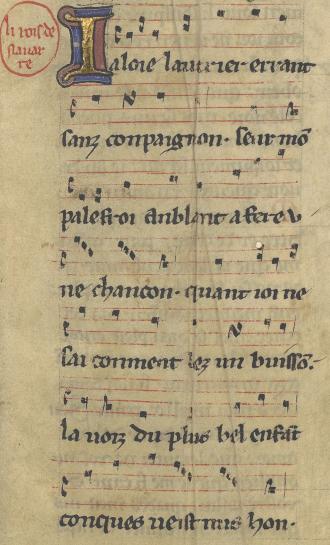 li rois de
nauar
re
I aloie lautrier errant
sanz conpaignon. seur mõ
palefroi
ne chancon. quant ioi ne
sai conment lez un buissõ.
la uoiz du plus bel enfãt
conques ueist nus hon.